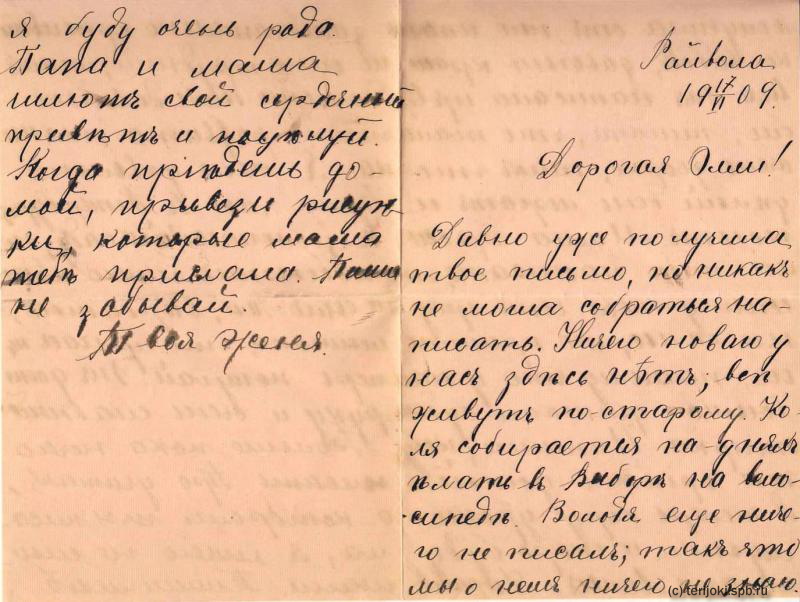 Райвола
19 17/VI 09.
Дорогая Элли!
Давно уже получила
твое письмо, но никакъ
не могла собраться на-
писать. Ничего новаго у
насъ здѣсь нѣтъ; всѣ
живутъ по-старому. Ко-
ля собирается на-дняхъ
ѣхать въ Выборгъ на вело-
сипедѣ. Володя еще ниче-
го не писалъ; такъ что
мы о немъ ничего не знаю.
я буду очень рада.
Папа и мама
шлютъ свой сердечный
привѣтъ и поцѣлуй.
Когда пріѣдешь до-
мой, привези рисун
ки, которые мама
тебѣ прислала.
не забывай.
Твоя Женя.
(c) terijoki.spb.ru